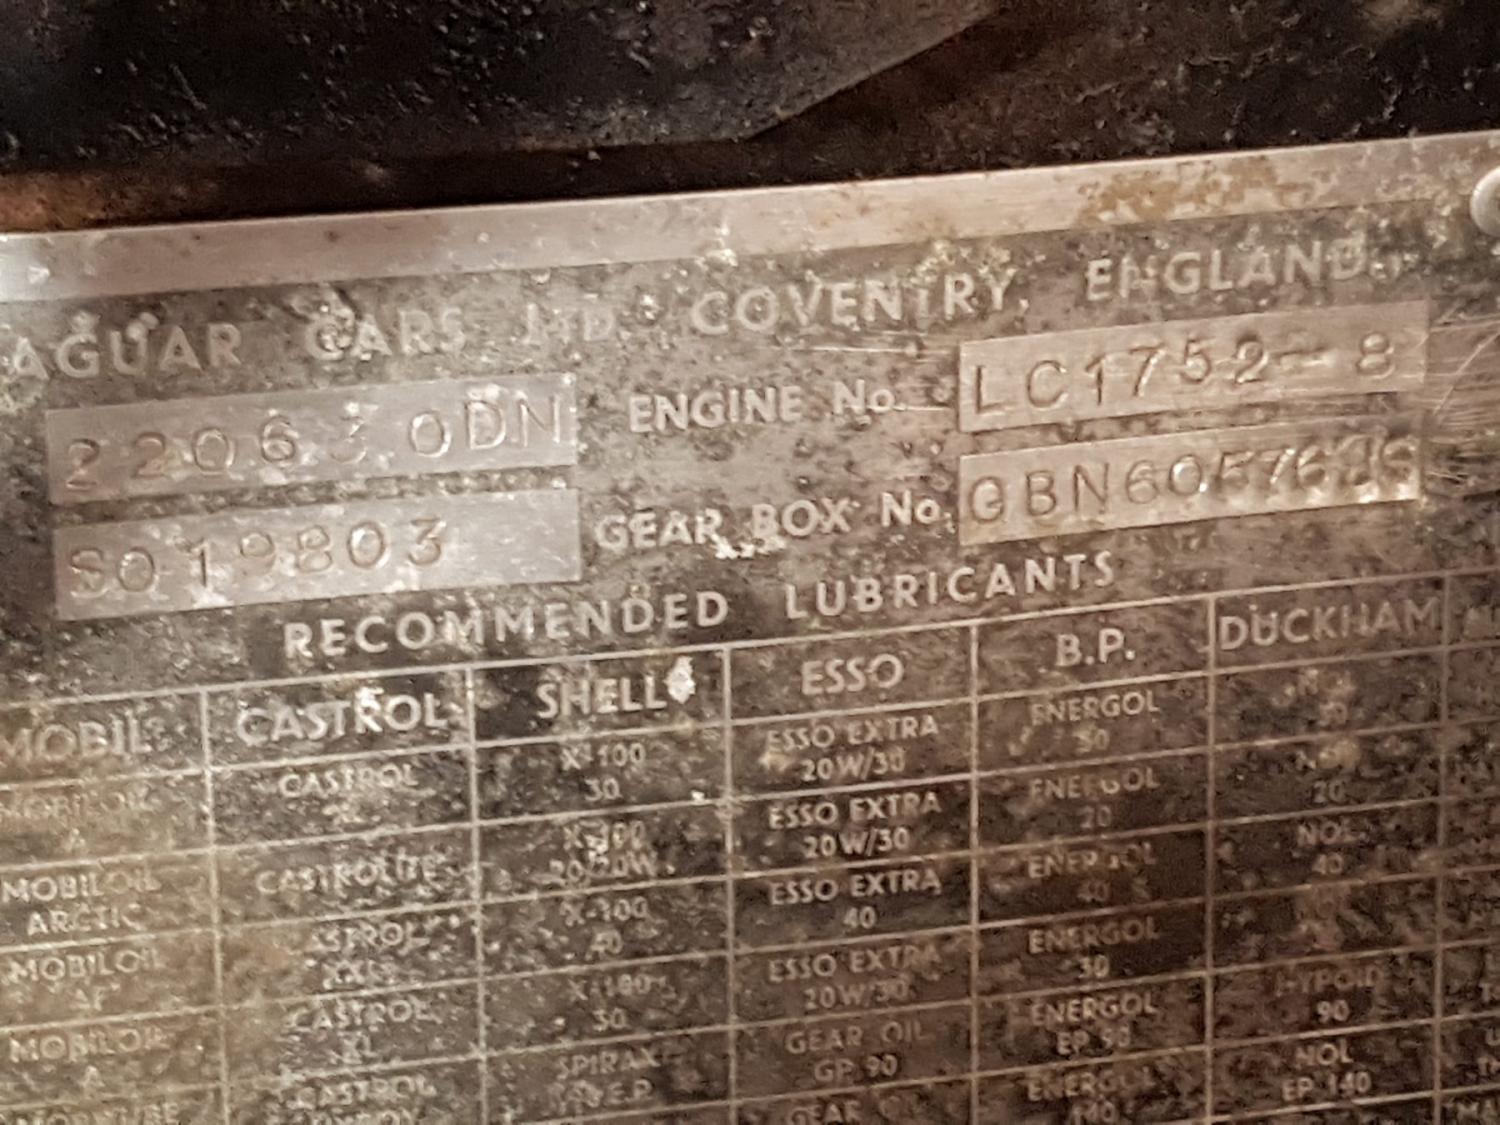 AGUAR CARS LTD. COVENTRY, ENGLAND.
220630DN ENGINE No. LC1752-8
SO19803 GEAR BOX No.
RECOMMENDED LUBRICANTS
MOBIL CASTROL SHELL ESSO B.P. DUCKHAM
MOBILOIL CASTROL X-100 ESSO EXTRA ENERGOL
A XL 30 20W/30 30
X-100 ESSO EXTRA ENERGOL NOL
20/20W 20W/30 20 20
MOBILOIL CASTROLITE X-100 ESSO EXTRA ENERGOL NOL
ARCTIC 40 40 40 40
MOBILOIL CASTROL X-100 ESSO EXTRA ENERGOL
AF XXL 30 20W/30 30
MOBILOIL CASTROL SPIRAX GEAR OIL ENERGOL HYPOID
A XL E.P. GP 90 EP 90 90
CASTROL GEAR ENERGOL NOL
140 EP 140